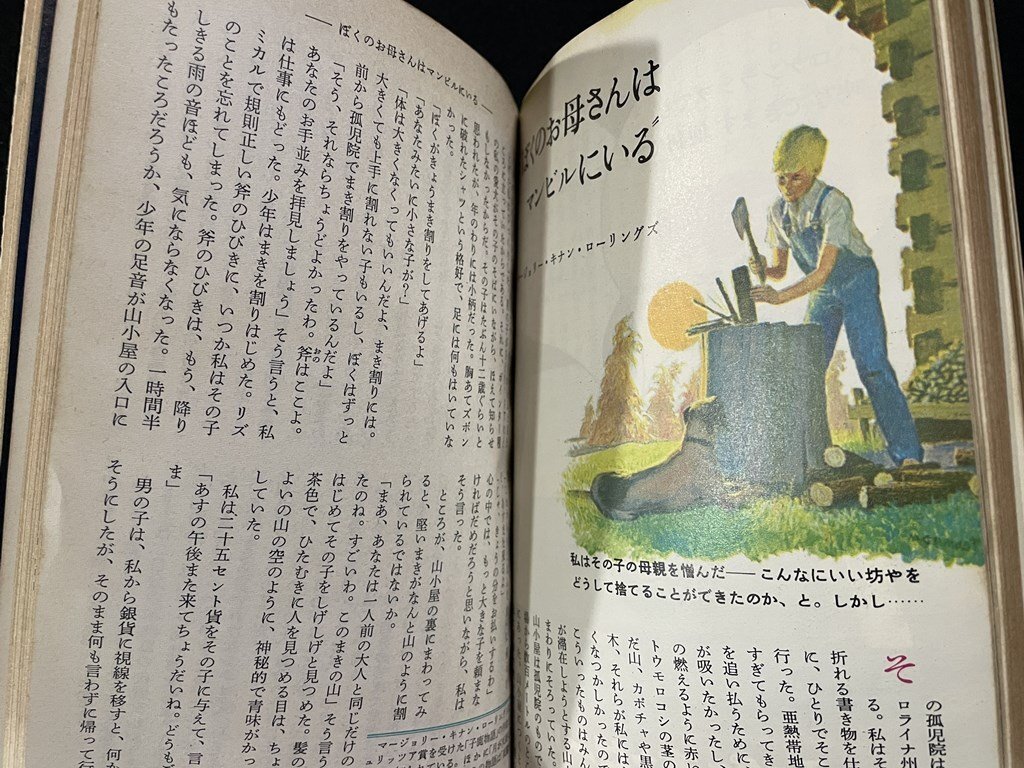 ぼくのお母さんは
マンビルにいる〟
ージョリー・キナン・ローリングズ
私はその子の母親を憎んだ――こんなにいい坊やを
どうして捨てることができたのか、と。しかし……
そ
の孤児院は
ロライナ州
る。私はそ
折れる書き物を仕
に、ひとりでそこ
行った。亜熱帯地
すぎてもらってき
を追い払うために
が吸いたかったし、
の燃えるように赤い
トウモロコシの茎の
だ山、カボチャや黒
木、それらが私には
くなつかしかったので
こういったものはみん
が滞在しようとする山
まわりにそろっていた。
山小屋は孤児院のもので
――ぼくのお母さんはマンビルにいる――
もしなかったからだ。その子はたぶん十二歳ぐらいと
思われたが、年のわりには小柄だった。胸あてズボン
に破れたシャツという格好で、足には何もはいていな
かった。
「ぼくがきょうまき割りをしてあげるよ」
「あなたみたいに小さな子が？」
「体は大きくなくってもいいんだよ、まき割りには。
大きくても上手に割れない子もいるし、ぼくはずっと
前から孤児院でまき割りをやっているんだよ」
「そう、それならちょうどよかったわ。斧はここよ。
おの
あなたのお手並みを拝見しましょう」そう言うと、私
は仕事にもどった。少年はまきを割りはじめた。リズ
ミカルで規則正しい斧のひびきに、いつか私はその子
のことを忘れてしまった。斧のひびきは、もう、降り
しきる雨の音ほども、気にならなくなった。一時間半
もたったころだろうか、少年の足音が山小屋の入口に
心の中では、もっと大きな子を頼まな
ければだめだろうと思いながら、私は
そう言った。
ところが、山小屋の裏にまわってみ
ると、堅いまきがなんと山のように割
られているではないか。
「まあ、あなたは一人前の大人と同じだけの
たのね。すごいわ。このまきの山」そう言う
はじめてその子をしげしげと見つめた。髪の
茶色で、ひたむきに人を見つめる目は、ちょ
よいの山の空のように、神秘的で青味がかっ
していた。
私は二十五セント貨をその子に与えて、言
「あすの午後また来てちょうだいね。どうも
ま」
男の子は、私から銀貨に視線を移すと、何か
そうにしたが、そのまま何も言わずに帰って行
マージョリー・キナン・ロー